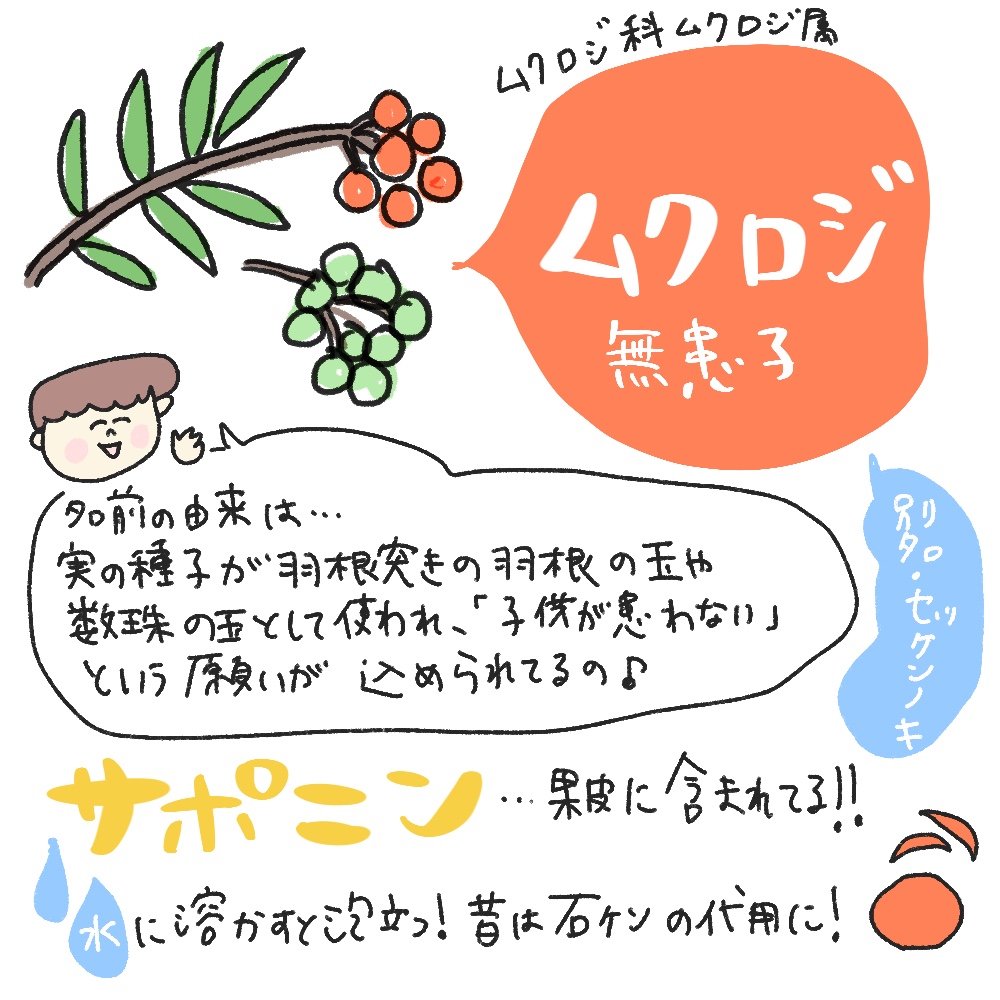 ムクロジ科ムクロジ属
ムクロジ
無患子
別名・セッケンノキ
名前の由来は…
実の種子が羽根突きの羽根の玉や
数珠の玉として使われ、「子供が患わない」
という願いが込められてるの♪
サポニン…果皮に含まれてる!!
水に溶かすと泡立つ!昔は石ケンの代用に!